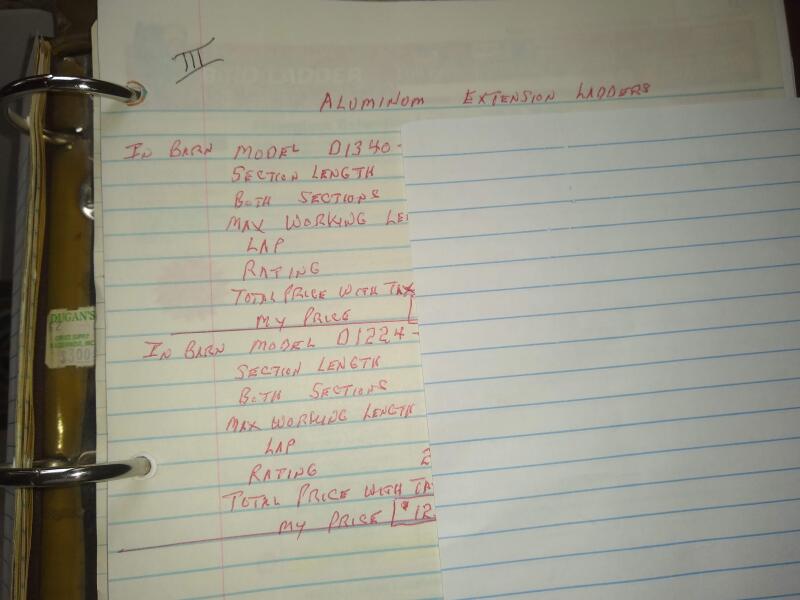 III
ALUMINUM EXTENSION LADDERS
IN BARN MODEL D1340-
SECTION LENGTH
BOTH SECTIONS
MAX WORKING LE
LAP
RATING
TOTAL PRICE WITH TAX
MY PRICE
IN BARN MODEL D1224-
SECTION LENGTH
BOTH SECTIONS
MAX WORKING LENGTH
LAP
RATING 2
TOTAL PRICE WITH TA
MY PRICE $12
DUGAN'S